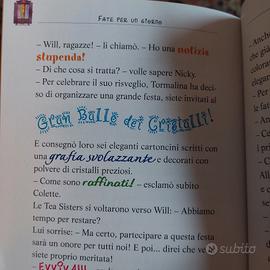 FATE PER UN GIORNO
– Will, ragazze! – li chiamò. – Ho una notizia
stupenda!
– Di che cosa si tratta? – volle sapere Nicky.
– Per celebrare il suo risveglio, Tormalina ha deci-
so di organizzare una grande festa, siete invitati al
Gran Ballo dei Cristalli!
E consegnò loro sei eleganti cartoncini scritti con
una grafia svolazzante e decorati con
polvere di cristalli preziosi.
– Come sono raffinati! – esclamò subito
Colette.
Le Tea Sisters si voltarono verso Will: – Abbiamo
tempo per restare?
Lui sorrise: – Ma certo, partecipare a questa festa
sarà un onore per tutti noi! E poi... direi che ve lo
siete proprio meritato!
– Anche
subito